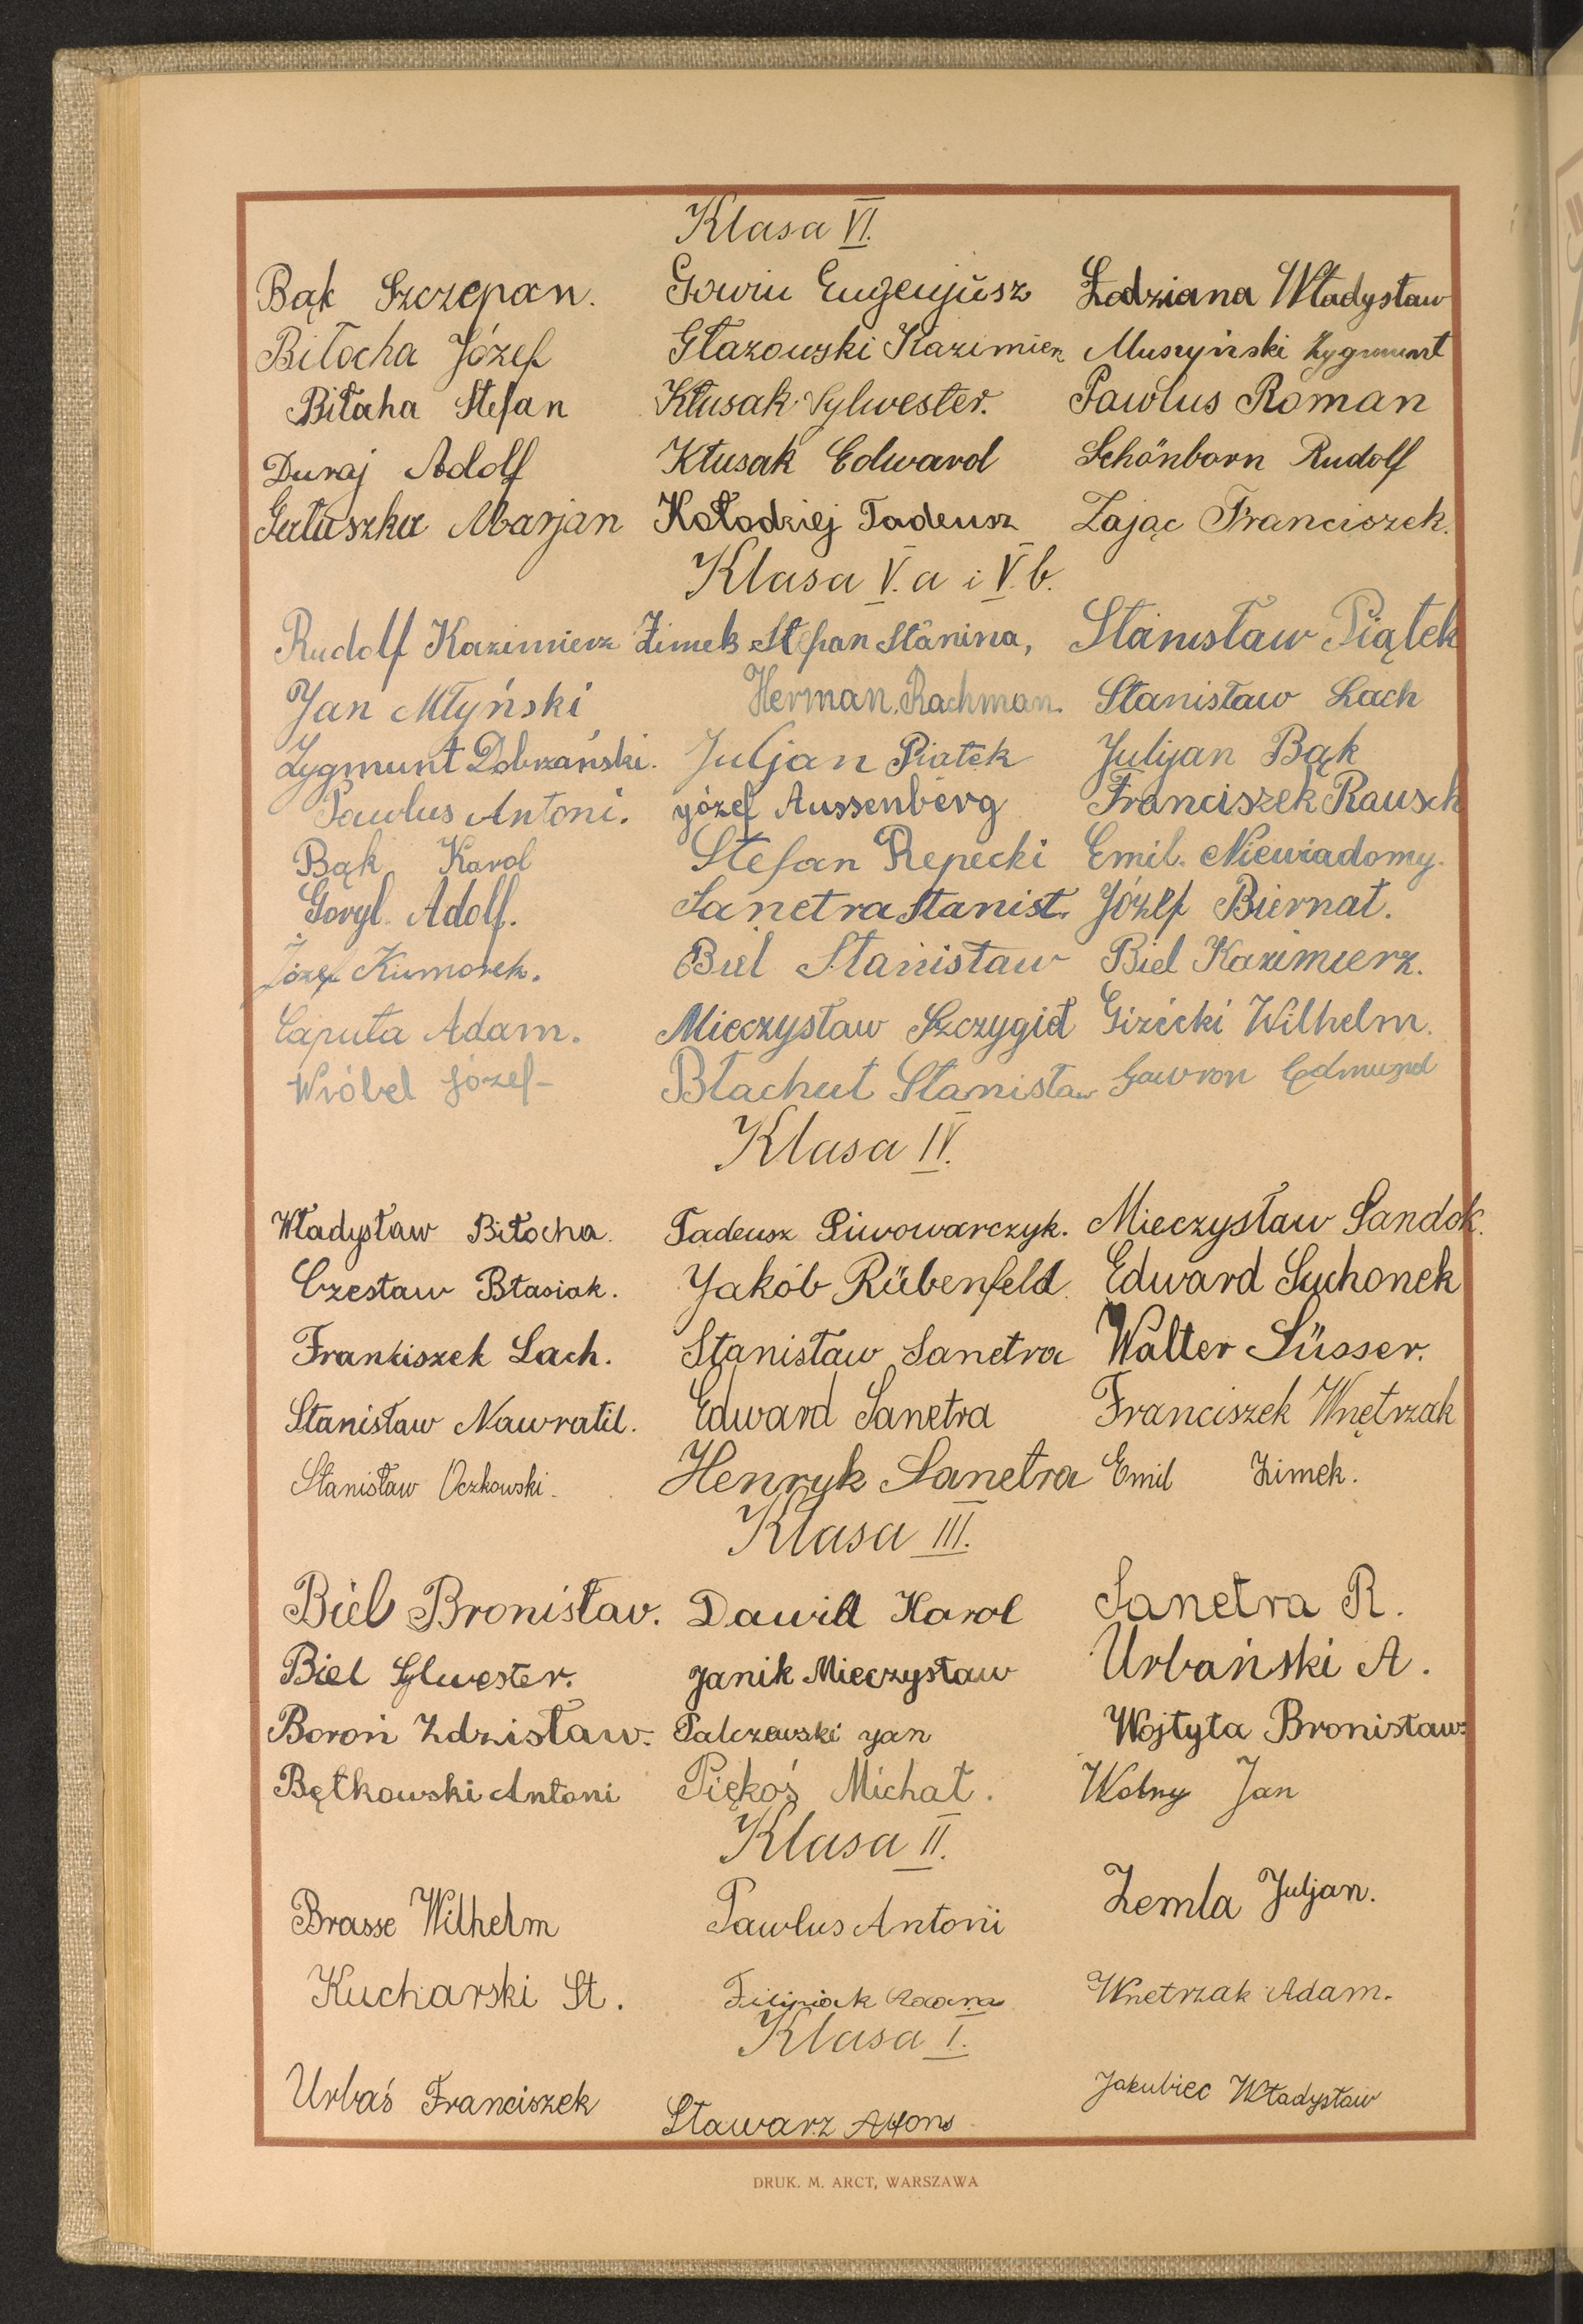 Klasa VI.
Bąk Szczepan. Gowin Eugenjusz Łodziana Władysław
Biłocha Józef Głazowski Kazimierz Muszyński Zygmunt
Biłaha Stefan Kłusak Sylwester. Pawlus Roman
Duraj Adolf Kłusak Edward Schönborn Rudolf
Gałuszka Marjan Kołodziej Tadeusz Zając Franciszek.
Klasa V. a i V. b.
Rudolf Kazimierz Zimek Stefan Stanina, Stanisław Piątek
Jan Młyński Herman Rachman. Stanisław Lach
Zygmunt Dobrzański. Juljan Piątek Julijan Bąk
Pawlus Antoni. Józef Aussenberg Franciszek Rausch
Bąk Karol Stefan Repecki Emil. Niewiadomy.
Goryl Adolf. Sanetra Stanisł. Józef Biernat.
Józef Kumorek. Biel Stanisław Biel Kazimierz.
Caputa Adam. Mieczysław Szczygieł Giżecki Wilhelm.
Wróbel Józef- Błachut Stanisław Gawron Edmund
Klasa IV.
Władysław Biłocha. Tadeusz Piwowarczyk. Mieczysław Sandok.
Czesław Błasiak. Jakób Rübenfeld. Edward Suchonek
Franciszek Lach. Stanisław Sanetra Walter Süsser.
Stanisław Nawratil. Edward Sanetra Franciszek Wnętrzak
Stanisław Oczkowski. Henryk Sanetra Emil Zimek.
Klasa III.
Biel Bronisław. Dawid Karol Sanetra R.
Biel Sylwester. Janik Mieczysław Urbański A.
Boroń Zdzisław. Palczewski Jan Wojtyła Bronisław.
Bętkowski Antoni Piękoś Michał. Wolny Jan
Klasa II.
Brasse Wilhelm Pawlus Antoni Zemla Juljan.
Kucharski St. Filipiak Wnetrzak Adam.
Klasa I.
Urbaś Franciszek Stawarz Alfons Jakubiec Władysław
DRUK. M. ARCT, WARSZAWA